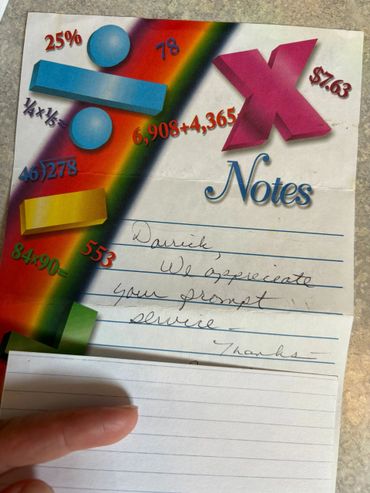 25%
78
$7.63
¼x⅕=
6,908+4,365
46)278
Notes
84x90=
553
Darrick,
We appreciate
your prompt
service-
Thanks-